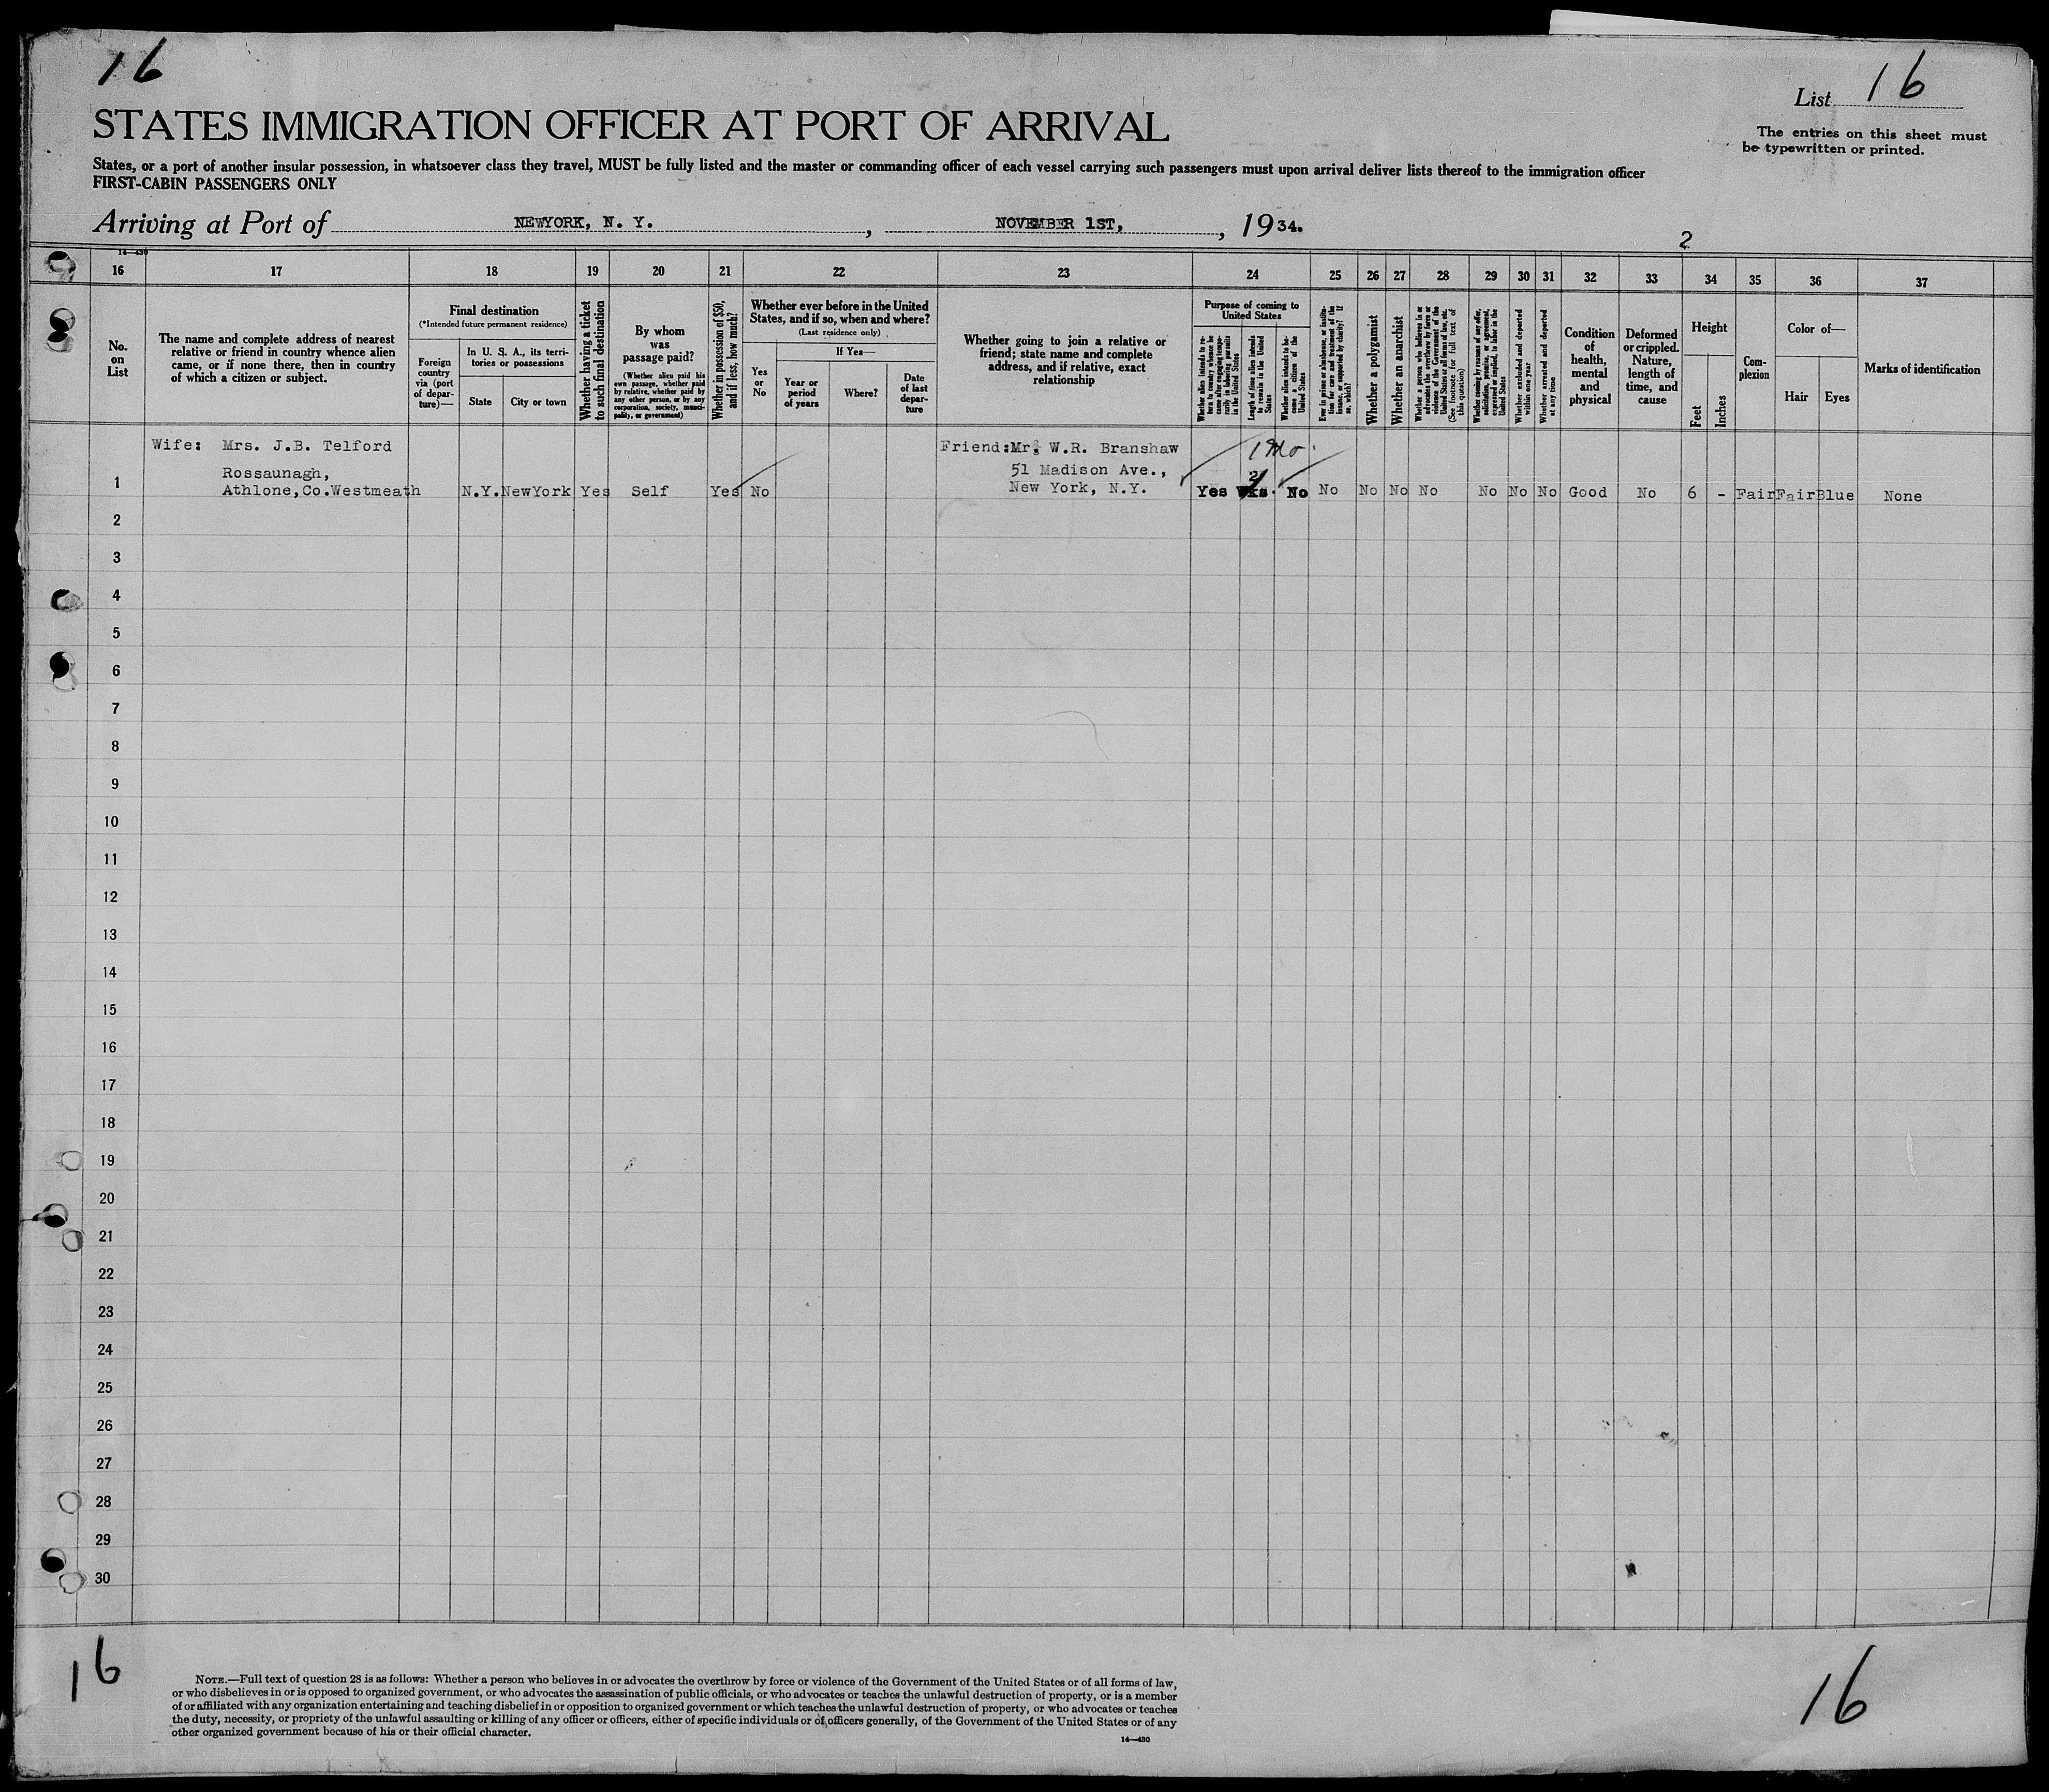 16
List 16
STATES IMMIGRATION OFFICER AT PORT OF ARRIVAL
The entries on this sheet must
be typewritten or printed.
States, or a port of another insular possession, in whatsoever class they travel, MUST be fully listed and the master or commanding officer of each vessel carrying such passengers must upon arrival deliver lists thereof to the immigration officer
FIRST-CABIN PASSENGERS ONLY
Arriving at Port of NEWYORK, N. Y., NOVEMBER 1ST, 1934.
2
14—430
16 17 18 19 20 21 22 23 24 25 26 27 28 29 30 31 32 33 34 35 36 37
No.
on
List
The name and complete address of nearest
relative or friend in country whence alien
came, or if none there, then in country
of which a citizen or subject.
Final destination
(*Intended future permanent residence)
Foreign
country
via (port
of depar-
ture)—
In U. S. A., its terri-
tories or possessions
State
City or town
Whether having a ticket
to such final destination
By whom
was
passage paid?
(Whether alien paid his
own passage, whether paid
by relative, whether paid by
any other person, or by any
corporation, society, munici-
pality, or government)
Whether in possession of $50,
and if less, how much?
Whether ever before in the United
States, and if so, when and where?
(Last residence only)
Yes
or
No
If Yes—
Year or
period
of years
Where?
Date
of last
depar-
ture
Whether going to join a relative or
friend; state name and complete
address, and if relative, exact
relationship
Purpose of coming to
United States
Whether alien intends to re-
turn to country whence he
came after engaging tempo-
rarily in laboring pursuits
in the United States
Length of time alien intends
to remain in the United
States
Whether alien intends to be-
come a citizen of the
United States
Ever in prison or almshouse, or institu-
tion for care and treatment of the
insane, or supported by charity? If
so, which?
Whether a polygamist
Whether an anarchist
Whether a person who believes in or
advocates the overthrow by force or
violence of the Government of the
United States or all forms of law, etc.
(See footnote for full text of
this question)
Whether coming by reasons of any offer,
solicitation, promise, or agreement,
expressed or implied, to labor in the
United States
Whether excluded and deported
within one year
Whether arrested and deported
at any time
Condition
of
health,
mental
and
physical
Deformed
or crippled.
Nature,
length of
time, and
cause
Height
Feet
Inches
Com-
plexion
Color of—
Hair
Eyes
Marks of identification
Wife: Mrs. J.B. Telford
Rossaunagh,
Athlone,Co.Westmeath
Friend:Mr. W.R. Branshaw
51 Madison Ave.,
New York, N.Y.
1 Mo.
2
1 N.Y. NewYork Yes Self Yes No Yes Wks. No No No No No No No No Good No 6 - Fair Fair Blue None
2
3
4
5
6
7
8
9
10
11
12
13
14
15
16
17
18
19
20
21
22
23
24
25
26
27
28
29
30
16
16
NOTE.—Full text of question 28 is as follows: Whether a person who believes in or advocates the overthrow by force or violence of the Government of the United States or of all forms of law,
or who disbelieves in or is opposed to organized government, or who advocates the assassination of public officials, or who advocates or teaches the unlawful destruction of property, or is a member
of or affiliated with any organization entertaining and teaching disbelief in or opposition to organized government or which teaches the unlawful destruction of property, or who advocates or teaches
the duty, necessity, or propriety of the unlawful assaulting or killing of any officer or officers, either of specific individuals or of officers generally, of the Government of the United States or of any
other organized government because of his or their official character.
14—430